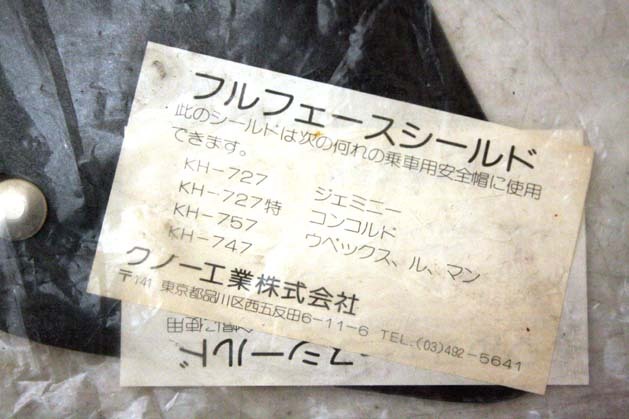 フルフェースシールド
此のシールドは次の何れの乗車用安全帽に使用
できます。
KH-727 ジェミニー
KH-727特 コンコルド
KH-757 ウベックス、ル、マン
KH-747
クノー工業株式会社
〒141 東京都品川区西五反田6-11-6 TEL.(03)492-5641
全帽に使用
スシールド